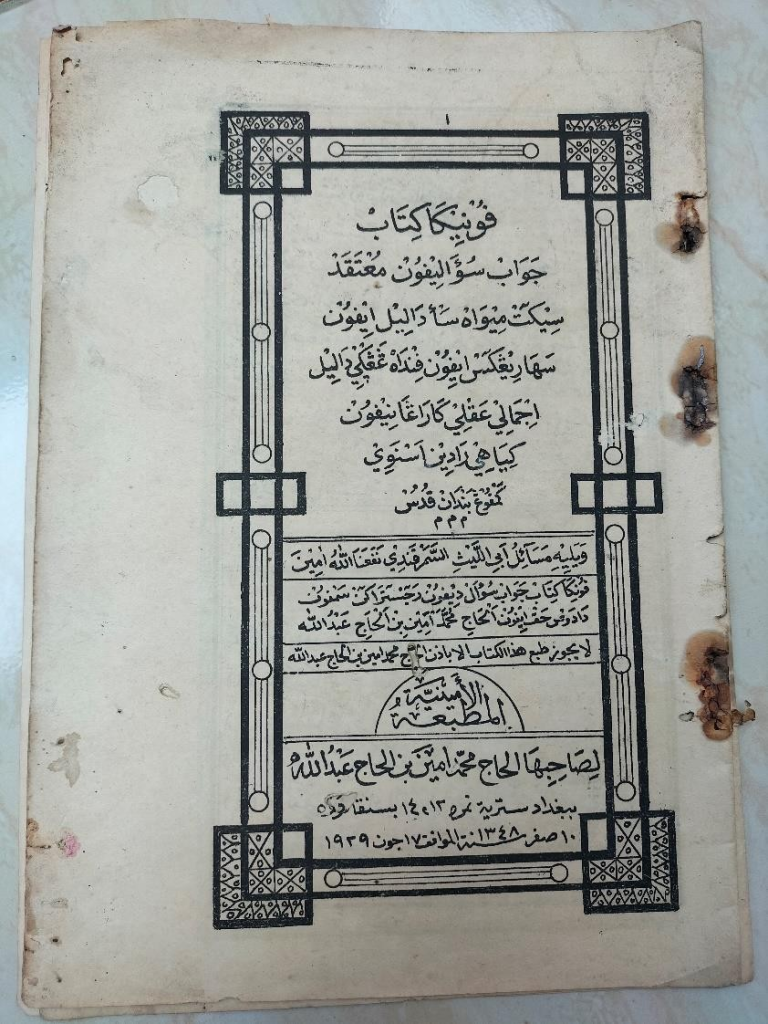 ١
فُوْنِيْكَا كِتَابْ
جَوَابْ سُؤَالَيْفُوْنْ مُعْتَقَدْ
سِيْكَتْ مِيْوَاهْ سَأْ دَالِيْلْ اِيْفُوْنْ
سَهَا رِيڠْكَسْ اِيْفُوْنْ فِنْدَاهْ دَالِيْلْ
اِجْمَالِيْ عَقْلِيْ كَارَاڠَانِيْفُوْنْ
كِيَاهِيْ رَادِيْن اَسْنَوِيْ
كَمْفُوڠْ بَنْدَانْ قُدُسْ
م م م
وَيَلِيْهِ مَسَائِلُ اَبِى اللَّيْثِ السَّمَرْقَنْدِيْ نَفَعَنَا اللهُ اٰمِيْنَ
فونكا كتاب جواب سؤال ديفون رجستراكن
حق الحاج محمد امين بن الحاج عبد الله
لا يجوز طبع هذا الكتاب الا باذن الحاج محمد امين بن الحاج عبدالله
الأَمِيْنِيَّة
المَطْبَعَة
لِصَاحِبِهَا الحاج محمّد اميْن بن الحاج عَبْدُ اللهْ
ببغداد ستريۃ نمره ١٣ بسنقافوره
١٠ صفر سنة ١٣٤٨ الموافق ١٧ جون ١٩٢٩